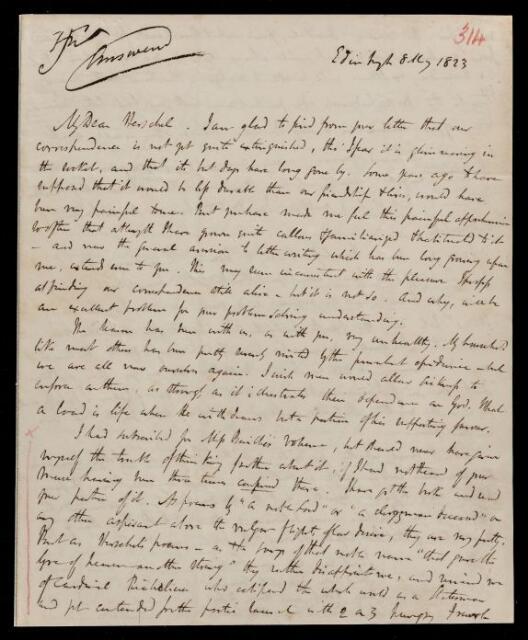 314
Answered
Edinburgh 8 May 1823
My Dear Herschel. I am glad to find from your letter that our
correspondence is not yet quite extinguished, tho I fear it is glimmering in
the socket, and that its best days have long gone by. Some years ago to have
supposed that it would be less durable than our friendship & lives, would have
been very painful to me. But you have made me feel this painful apprehension
so often that at length I have grown quite callous & familiarized & habituated to it
– and now the general aversion to letter writing which has been long growing upon
me, extends even to you. This may seem inconsistent with the pleasure I
at finding our correspondence still alive – but it is not so. And why, will be
an excellent problem for your problem solving understanding.
The season has been with us, as with you, very unhealthy. My household
like most others has been pretty nearly visited by the prevalent epidemic – but
we are all now ourselves again. I wish men would allow sickness to
on them, as strongly as it illustrates their dependence on God. What
a load is life when he withdraws but a portion of his supporting favour.
I had subscribed for Miss Baillie's Volume, but should never have given
myself the trouble of thinking farther about it, if I had not heard of your
Muse having been three times confined there. I have got the book and read
your portion of it. As poems by "a noble Lord" or "a clergyman deceased" or
any other aspirant above the vulgar flight of low desire, they are very pretty.
But as Herschel's poems – as the songs of that noble name "that gave the
lyre of heaven another string" they rather disappoint me, and remind me
of Cardinal Richelieu who eclipsed the whole world as a Statesman
and yet contended for the poetic laurel with 2 or 3